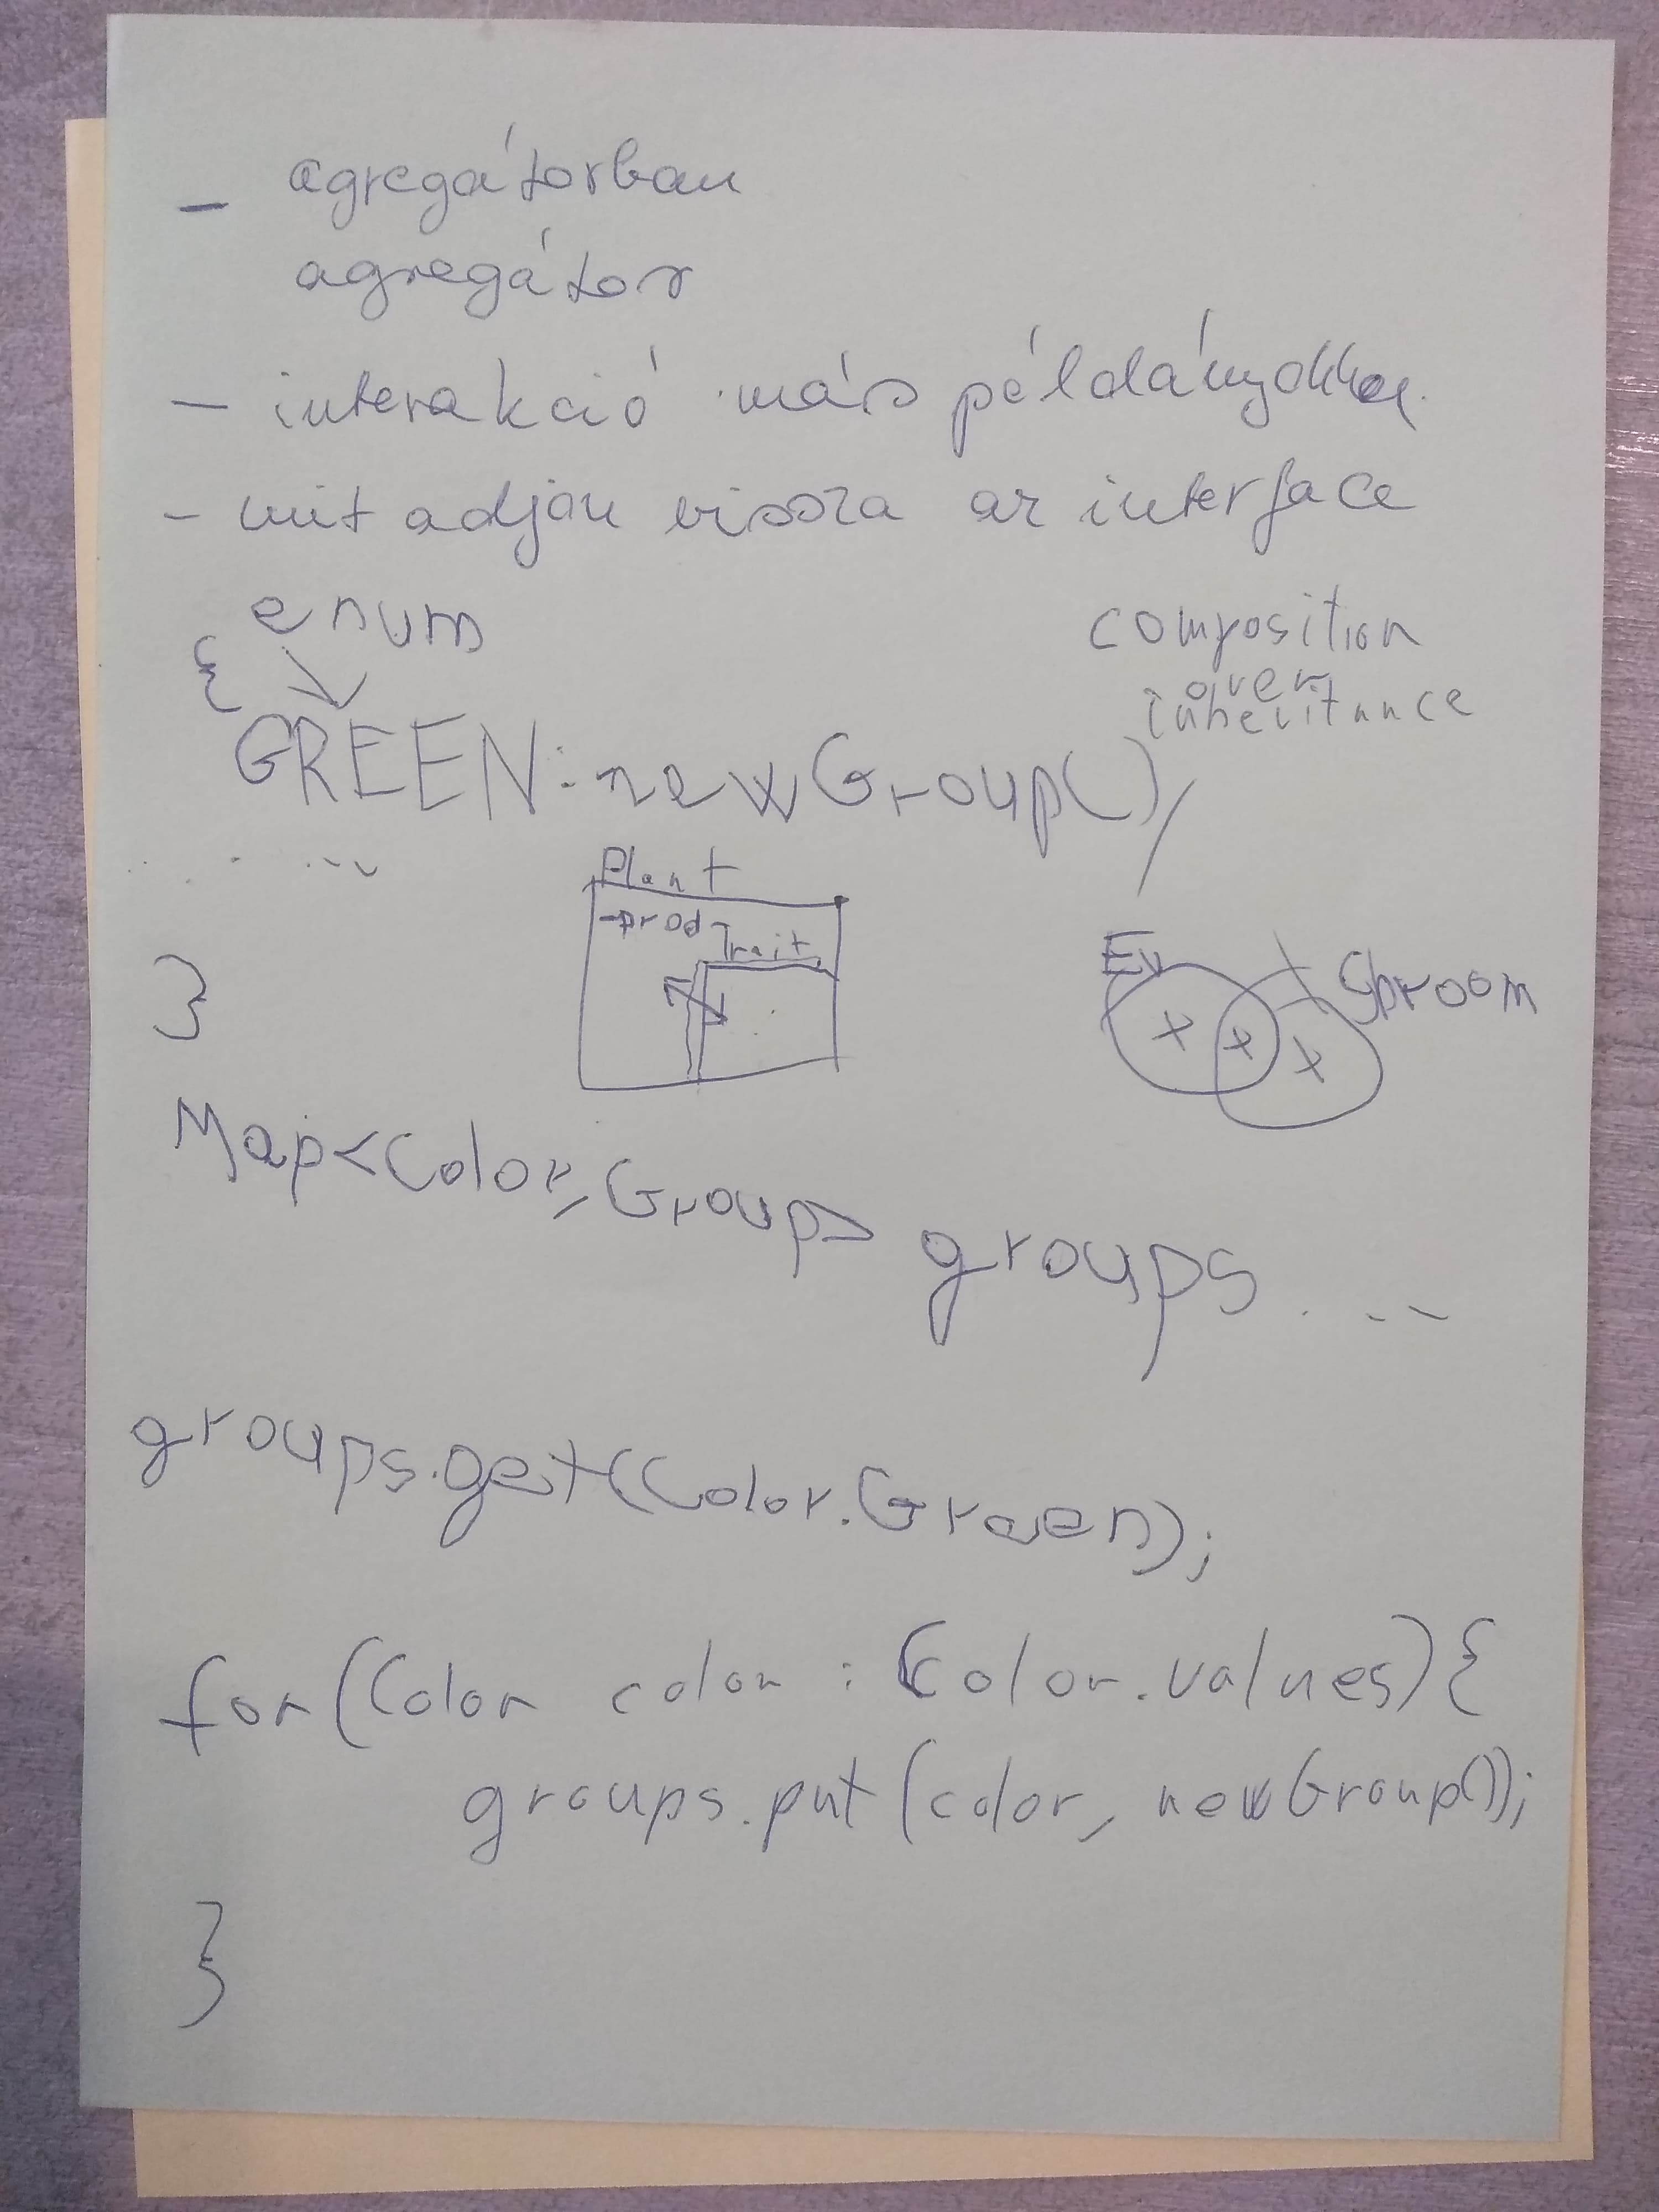 - agregátorban
agregátor
- interakció más példányokkal
- mit adjon vissza az interface
enum
{
composition
over
inheritance
GREEN: new Group(),
. . ...
Plant
-prod
Trait
Ev
Shroom
}
Map<Color, Group> groups ...
groups.get(Color.Green);
for (Color color : Color.values) {
groups.put (color, new Group());
}